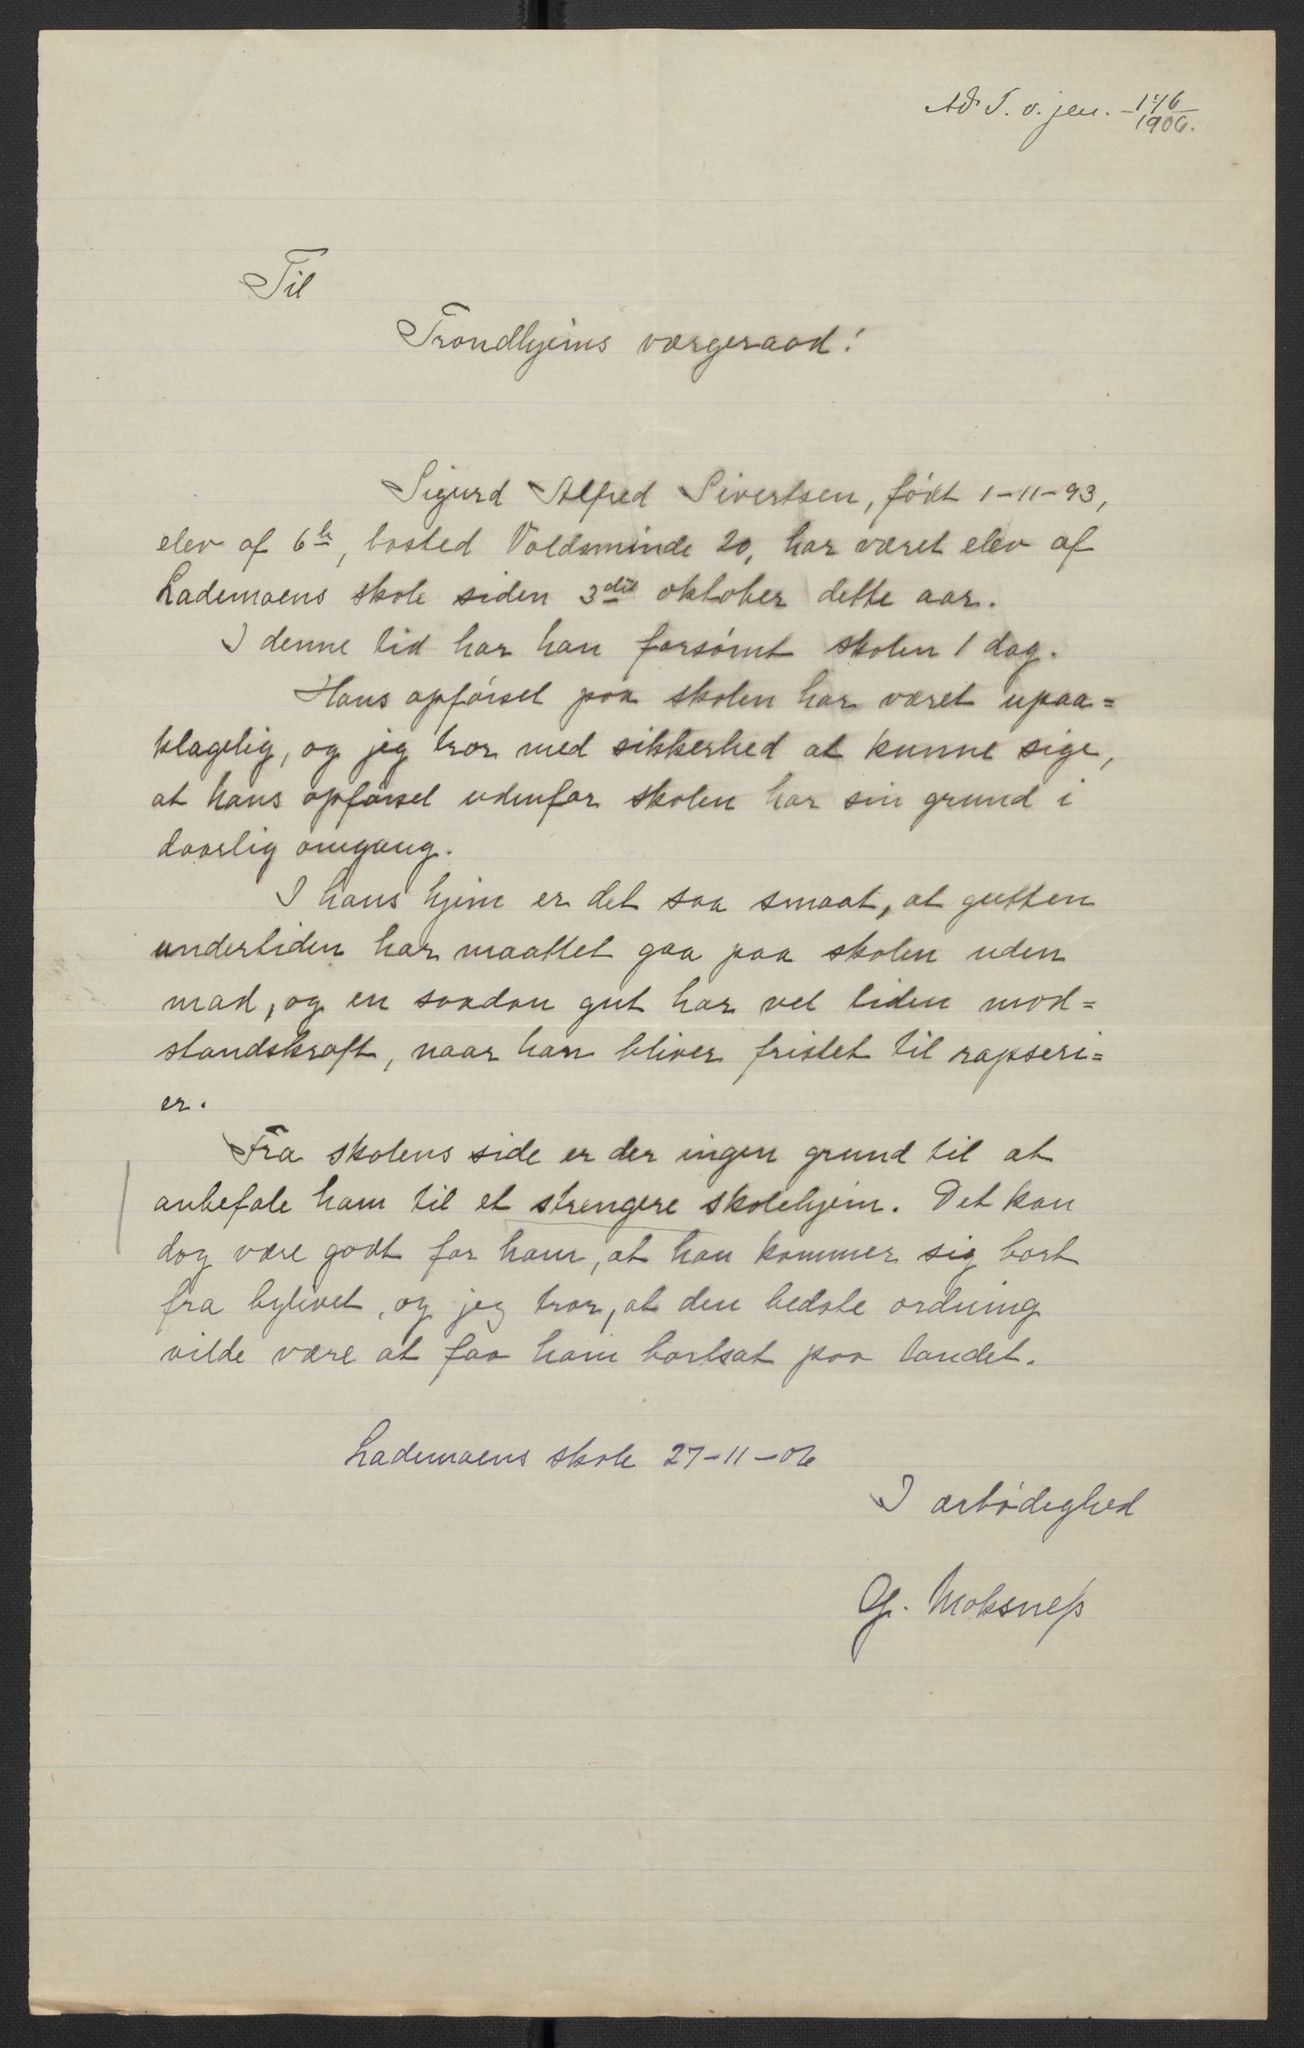 Ad T. v. jnr. 176/1906.
Til
Trondhjems værgeraad!
Sigurd Alfred Sivertsen, født 1-11-93,
elev af 6te, bosted Voldsminde 20, har været elev af
Lademoens skole siden 3die oktober dette aar.
I denne tid har han forsømt skolen 1 dag.
Hans opførsel paa skolen har været upaa=
klagelig, og jeg tror med sikkerhed at kunne sige,
at hans opførsel udenfor skolen har sin grund i
daarlig omgang.
I hans hjem er det saa smaat, at gutten
undertiden har maattet gaa paa skolen uden
mad, og en saadan gut har vel liden mod=
standskraft, naar han bliver fristet til rapseri=
er.
Fra skolens side er der ingen grund til at
anbefale ham til et strengere skolehjem. Det kan
dog være godt for ham, at han kommer sig bort
fra bylivet, og jeg tror, at den bedste ordning
vilde være at faa ham bortsat paa landet.
Lademoens skole 27-11-06
I ærbødighed
G. Moksness